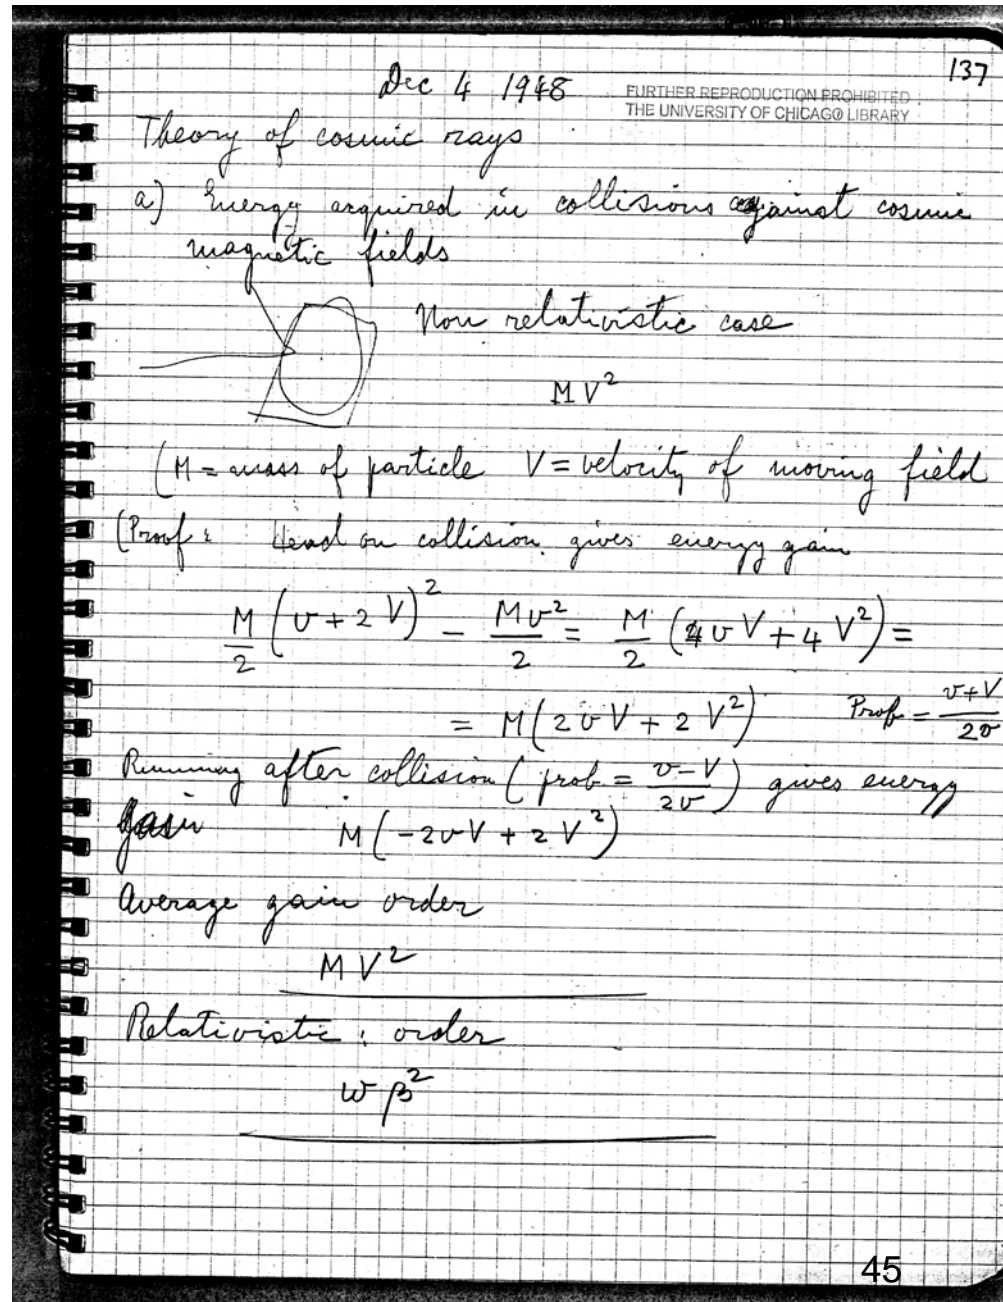 137
Dec 4 1948
FURTHER REPRODUCTION PROHIBITED
THE UNIVERSITY OF CHICAGO LIBRARY
Theory of cosmic rays
a) Energy acquired in collisions against cosmic
magnetic fields
Non relativistic case
M V²
(M = mass of particle V = velocity of moving field
(Proof: Head on collision gives energy gain
M/2 (v + 2V)² - Mv²/2 = M/2 (4vV + 4V²) =
= M(2vV + 2V²) Prob = v+V/2v
Running after collision (prob = v-V/2v) gives energy
gain M(-2vV + 2V²)
Average gain order
MV²
Relativistic: order
w β²
45